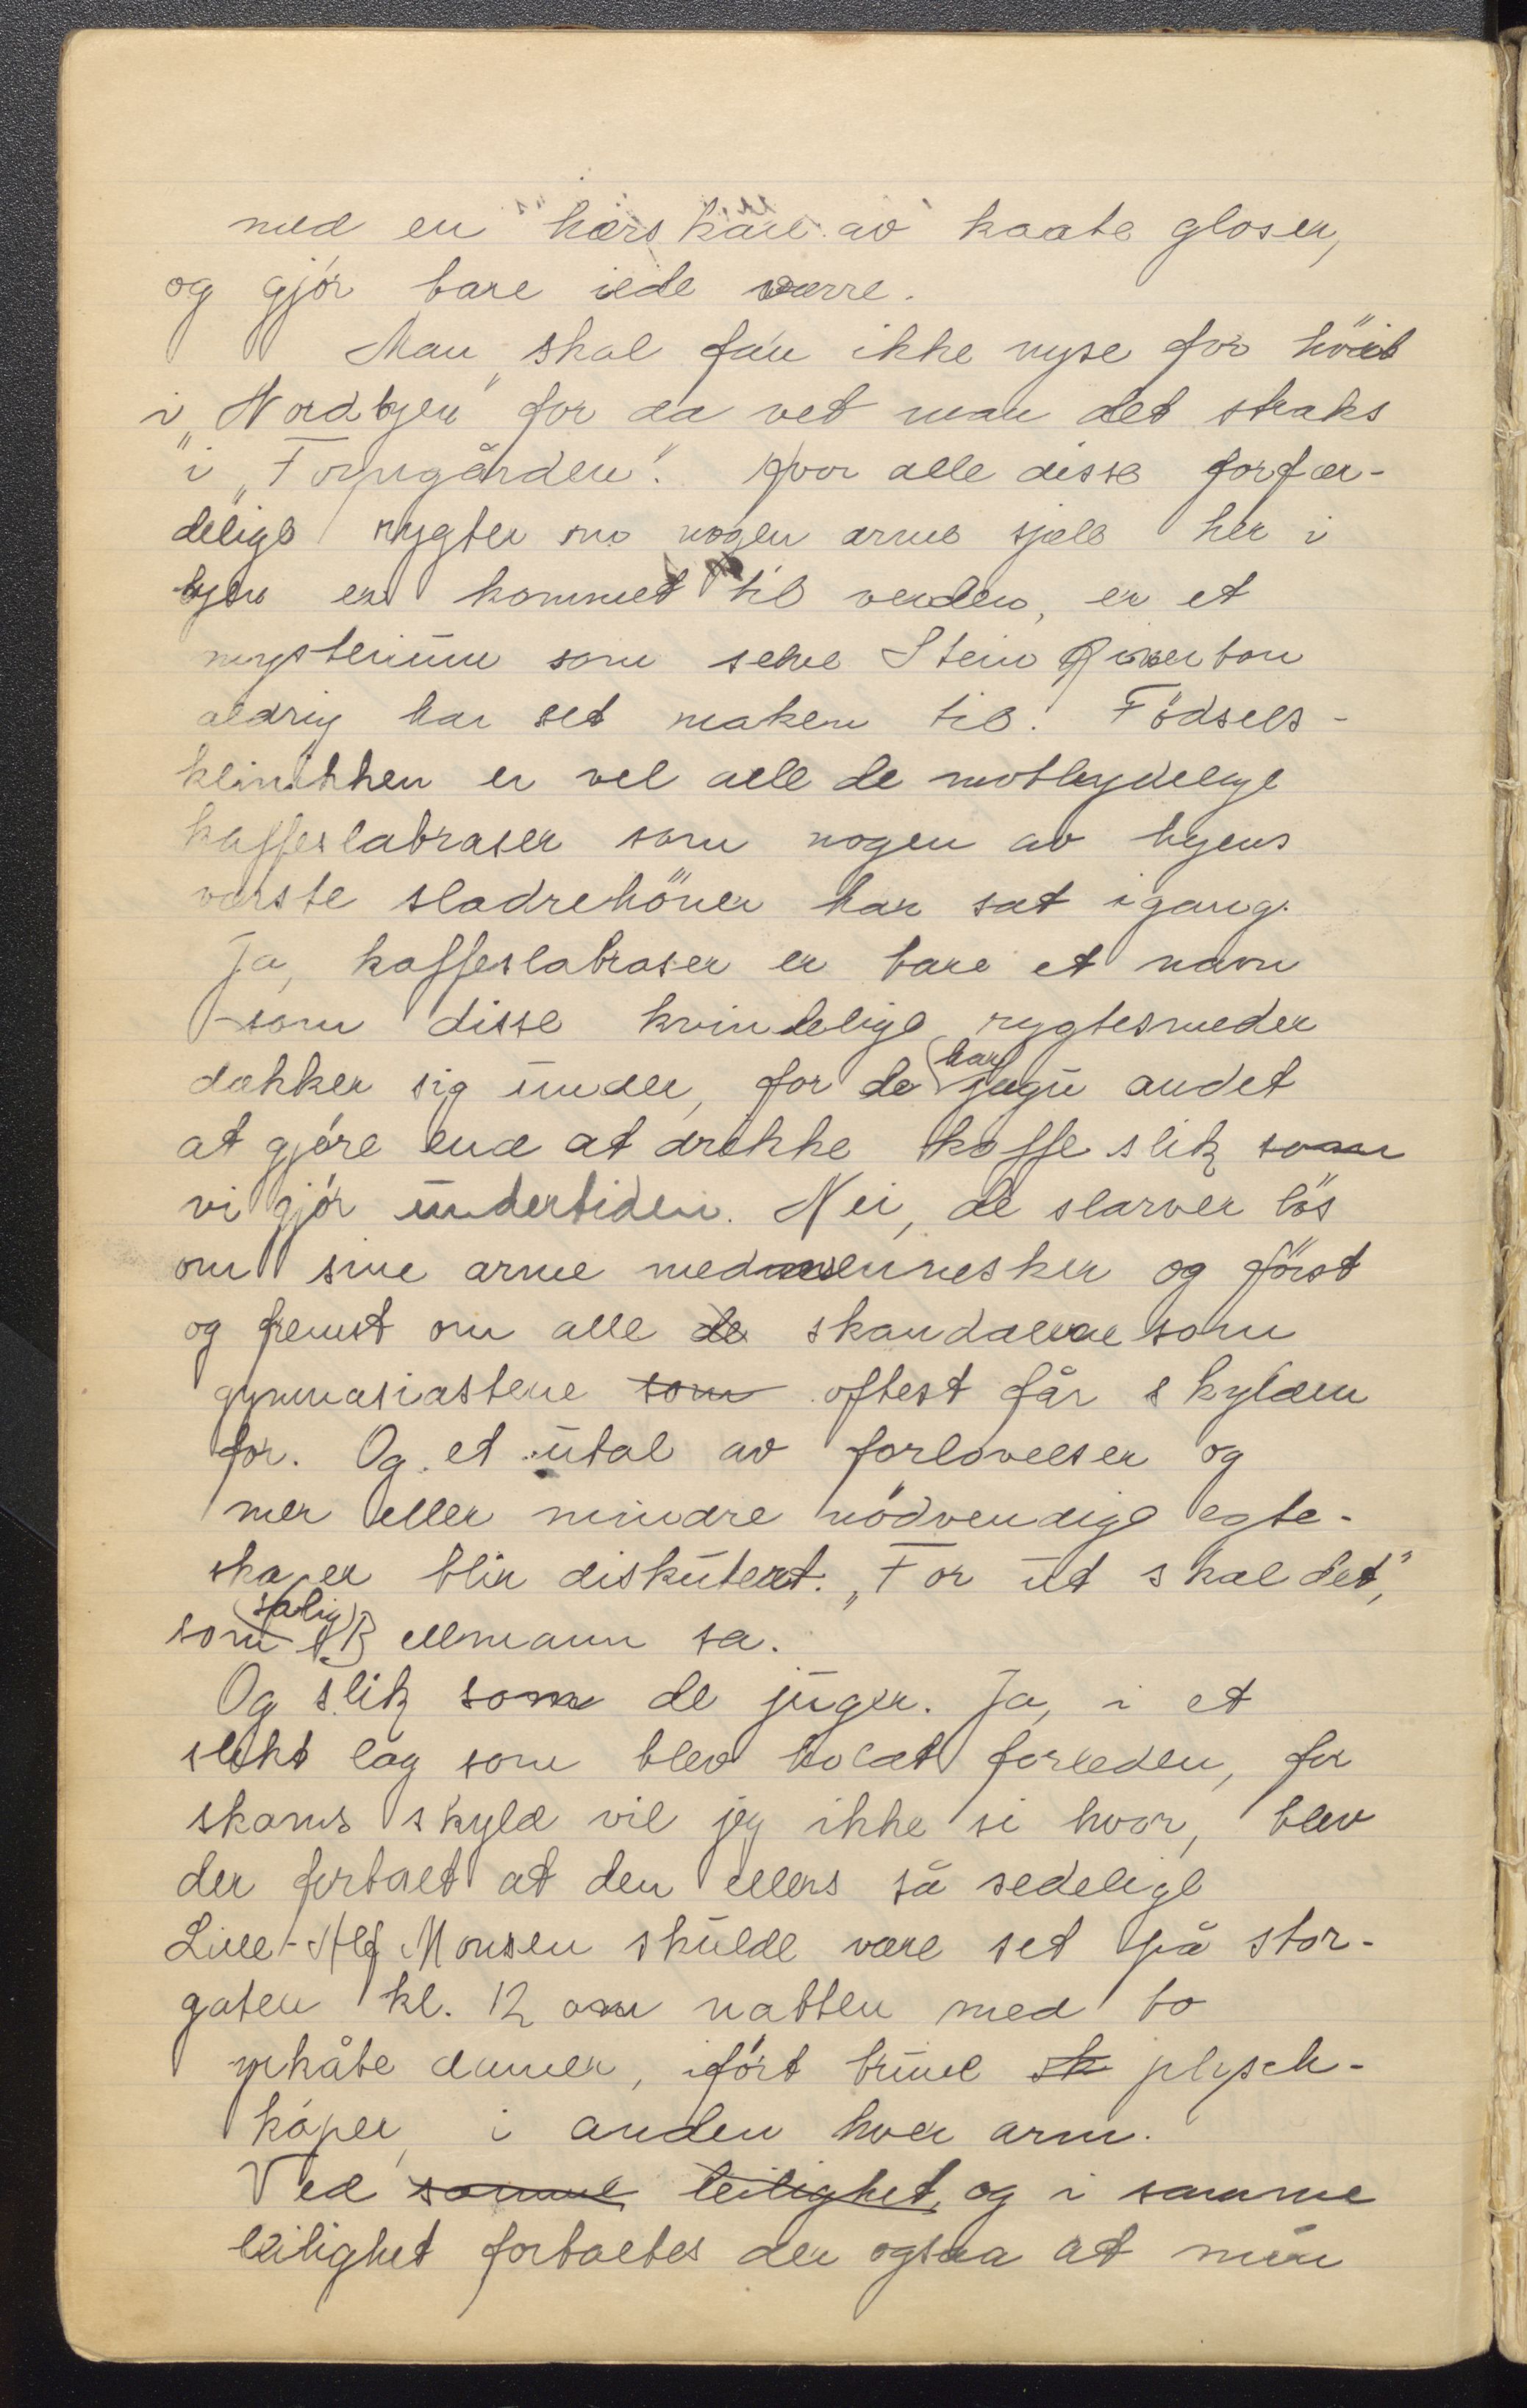 med en hærskare av kaate gloser,
og gjör bare ilde værre.
Man skal fan ikke nyse for höit
i „Nordbyen" for da vet man det straks
i „Torpegården". Hvor alle disse forfær-
delige rygter om nogen arme sjæle her i
byen er kommet til verden, er et
mysterium som selve Stein Riverton
aldrig har set maken til. Födsels-
klinikken er vel alle de motbydelige
kaffeslabraser som nogen av byens
værste sladrehöner har sat igang.
Ja, kaffeslabraser er bare et navn
som disse kvindelige rygtesmeder
dækker sig under, for de har jagu andet
at gjöre end at drikke kaffe slik som
vi gjör undertiden. Nei, de slarver lös
om sine arme medmennesker og först
og fremst om alle de skandalene som
gymnasiastene som oftest får skylden
for. Og et utal av forlovelser og
mer eller mindre nödvendige egte-
skaper blir diskutert. „For ut skal det",
som salig Bellmann sa.
Og slik som de juger. Ja, i et
slikt lag som blev holdt forleden, for
skams skyld vil jeg ikke si hvor, blev
der fortalt at den ellers så sedelige
Lille-Alf Monsen skulde være set på stor-
gaten kl. 12 om natten med to
yrkåte damer, ifört brune sk plysch-
kåper, i anden hver arm.
Ved samme leilighet, og i samme
leilighet fortaltes der ogsaa at min